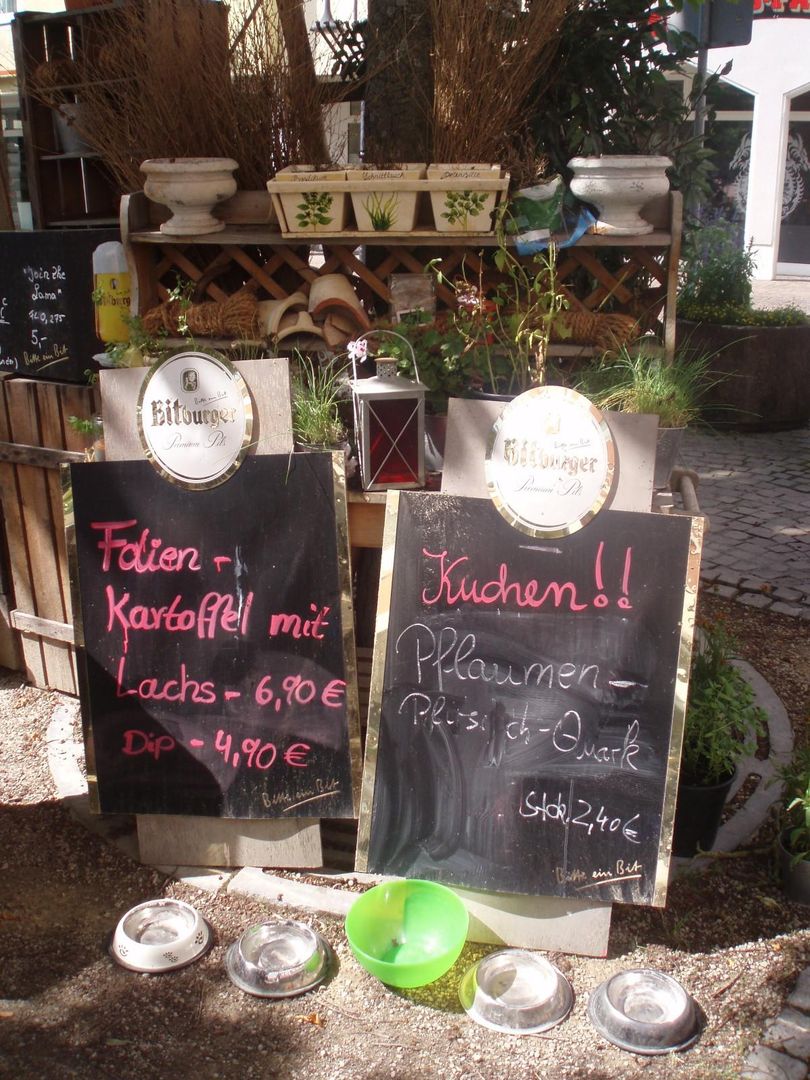 Basilikum
Schnittlauch
Petersilie
"Join the
Lama"
5,-
Bitte ein Bit
Bitte ein Bit
Bitburger
Premium Pils
Folien -
Kartoffel mit
Lachs - 6,90 €
Dip - 4,90 €
Bitte ein Bit
Bitte ein Bit
Bitburger
Premium Pils
Kuchen!!
Pflaumen -
Pfirsich-Quark
Stck. 2,40 €
Bitte ein Bit